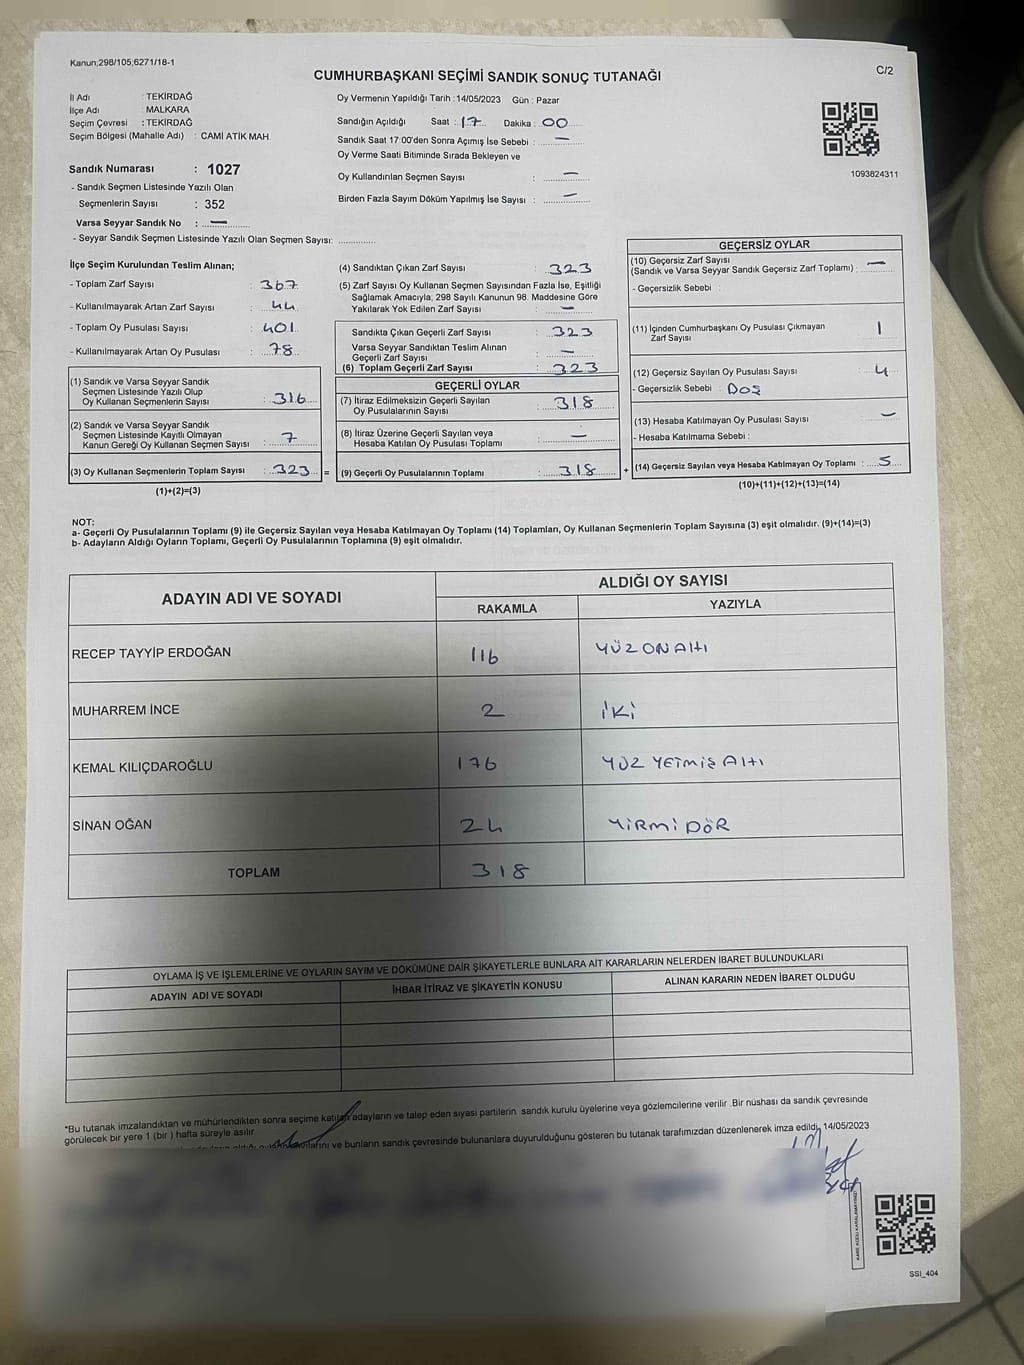 Kanun;298/105,6271/18-1
CUMHURBAŞKANI SEÇİMİ SANDIK SONUÇ TUTANAĞI
C/2
İl Adı : TEKİRDAĞ
İlçe Adı : MALKARA
Seçim Çevresi : TEKİRDAĞ
Seçim Bölgesi (Mahalle Adı) : CAMİ ATİK MAH.
Sandık Numarası : 1027
- Sandık Seçmen Listesinde Yazılı Olan
Seçmenlerin Sayısı : 352
Varsa Seyyar Sandık No : —
- Seyyar Sandık Seçmen Listesinde Yazılı Olan Seçmen Sayısı: ..............
Oy Vermenin Yapıldığı Tarih : 14/05/2023 Gün : Pazar
Sandığın Açıldığı Saat : 17 Dakika : 00
Sandık Saat 17:00'den Sonra Açımış İse Sebebi : —
Oy Verme Saati Bitiminde Sırada Bekleyen ve
Oy Kullandırılan Seçmen Sayısı : —
Birden Fazla Sayım Döküm Yapılmış İse Sayısı : —
1093824311
İlçe Seçim Kurulundan Teslim Alınan;
- Toplam Zarf Sayısı : 367
- Kullanılmayarak Artan Zarf Sayısı : 44
- Toplam Oy Pusulası Sayısı : 401
- Kullanılmayarak Artan Oy Pusulası : 78
(1) Sandık ve Varsa Seyyar Sandık
Seçmen Listesinde Yazılı Olup
Oy Kullanan Seçmenlerin Sayısı : 316
(2) Sandık ve Varsa Seyyar Sandık
Seçmen Listesinde Kayıtlı Olmayan
Kanun Gereği Oy Kullanan Seçmen Sayısı : 7
(3) Oy Kullanan Seçmenlerin Toplam Sayısı : 323 =
(1)+(2)=(3)
(4) Sandıktan Çıkan Zarf Sayısı : 323
(5) Zarf Sayısı Oy Kullanan Seçmen Sayısından Fazla İse, Eşitliği
Sağlamak Amacıyla, 298 Sayılı Kanunun 98. Maddesine Göre
Yakılarak Yok Edilen Zarf Sayısı : —
Sandıkta Çıkan Geçerli Zarf Sayısı : 323
Varsa Seyyar Sandıktan Teslim Alınan
Geçerli Zarf Sayısı : —
(6) Toplam Geçerli Zarf Sayısı : 323
GEÇERLİ OYLAR
(7) İtiraz Edilmeksizin Geçerli Sayılan
Oy Pusulalarının Sayısı : 318
(8) İtiraz Üzerine Geçerli Sayılan veya
Hesaba Katılan Oy Pusulası Toplamı : —
(9) Geçerli Oy Pusulalarının Toplamı : 318 +
GEÇERSİZ OYLAR
(10) Geçersiz Zarf Sayısı
(Sandık ve Varsa Seyyar Sandık Geçersiz Zarf Toplamı) : —
- Geçersizlik Sebebi :
(11) İçinden Cumhurbaşkanı Oy Pusulası Çıkmayan
Zarf Sayısı : 1
(12) Geçersiz Sayılan Oy Pusulası Sayısı : 4
- Geçersizlik Sebebi : BOŞ
(13) Hesaba Katılmayan Oy Pusulası Sayısı : —
- Hesaba Katılmama Sebebi :
(14) Geçersiz Sayılan veya Hesaba Katılmayan Oy Toplamı : 5
(10)+(11)+(12)+(13)=(14)
NOT:
a- Geçerli Oy Pusulalarının Toplamı (9) ile Geçersiz Sayılan veya Hesaba Katılmayan Oy Toplamı (14) Toplamları, Oy Kullanan Seçmenlerin Toplam Sayısına (3) eşit olmalıdır. (9)+(14)=(3)
b- Adayların Aldığı Oyların Toplamı, Geçerli Oy Pusulalarının Toplamına (9) eşit olmalıdır.
ADAYIN ADI VE SOYADI
ALDIĞI OY SAYISI
RAKAMLA YAZIYLA
RECEP TAYYİP ERDOĞAN 116 YÜZ ON ALTI
MUHARREM İNCE 2 İKİ
KEMAL KILIÇDAROĞLU 176 YÜZ YETMİŞ ALTI
SİNAN OĞAN 24 YİRMİ DÖR
TOPLAM 318
OYLAMA İŞ VE İŞLEMLERİNE VE OYLARIN SAYIM VE DÖKÜMÜNE DAİR ŞİKAYETLERLE BUNLARA AİT KARARLARIN NELERDEN İBARET BULUNDUKLARI
ADAYIN ADI VE SOYADI İHBAR İTİRAZ VE ŞİKAYETİN KONUSU ALINAN KARARIN NEDEN İBARET OLDUĞU
*Bu tutanak imzalandıktan ve mühürlendikten sonra seçime katılan adayların ve talep eden siyasi partilerin sandık kurulu üyelerine veya gözlemcilerine verilir .Bir nüshası da sandık çevresinde
görülecek bir yere 1 (bir ) hafta süreyle asılır
ve bunların sandık çevresinde bulunanlara duyurulduğunu gösteren bu tutanak tarafımızdan düzenlenerek imza edildi. 14/05/2023
KARE KODU KARALAMAYINIZ
SSI_404